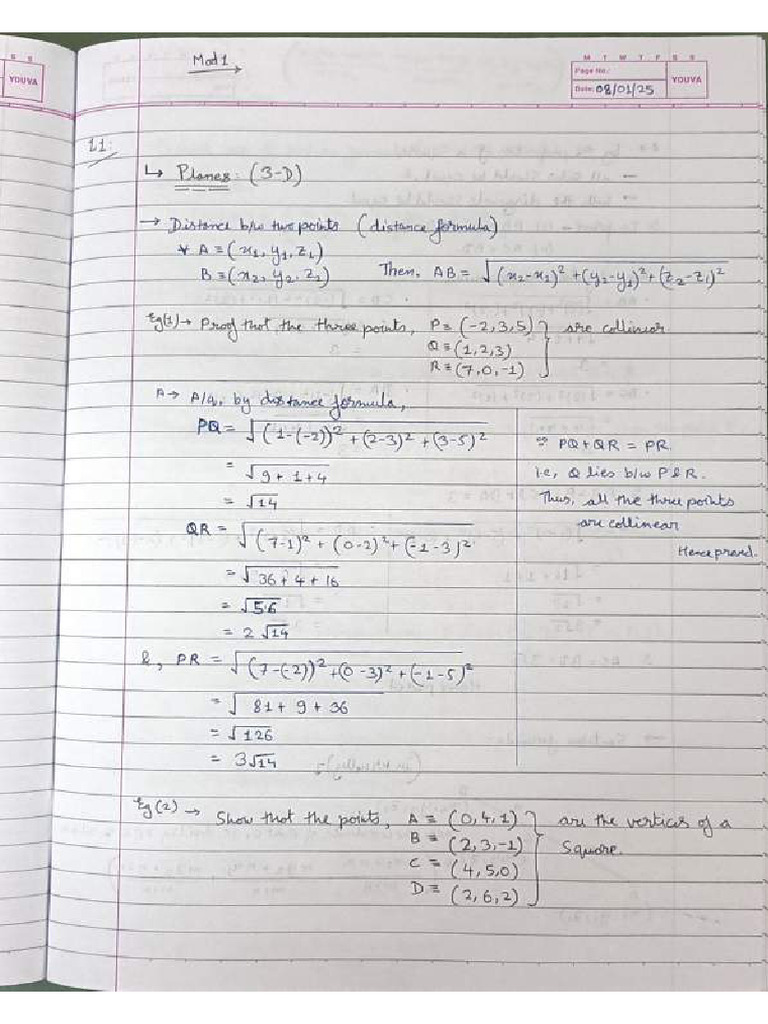 S S
YOUVA
Mod 1
M T W T F S S
Page No.:
Date: 08/01/25
YOUVA
1.1:
↳ Planes: (3-D)
→ Distance b/w two points (distance formula)
∀ A ≡ (x₁, y₁, z₁)
B ≡ (x₂, y₂, z₂) Then, AB = √(x₂-x₁)² + (y₂-y₁)² + (z₂-z₁)²
Eg(1) → Proof that the three points, P ≡ (-2, 3, 5) } are collinear
Q ≡ (1, 2, 3)
R ≡ (7, 0, -1)
A → A/q, by distance formula,
PQ = √(1-(-2))² + (2-3)² + (3-5)²
= √9 + 1 + 4
= √14
QR = √(7-1)² + (0-2)² + (-1-3)²
= √36 + 4 + 16
= √56
= 2√14
&, PR = √(7-(-2))² + (0-3)² + (-1-5)²
= √81 + 9 + 36
= √126
= 3√14
⇒ PQ + QR = PR.
i.e, Q lies b/w P & R.
Thus, all the three points
are collinear
Hence proved.
Eg(2) → Show that the points, A ≡ (0, 4, 1) } are the vertices of a
B ≡ (2, 3, -1) Square.
C ≡ (4, 5, 0)
D ≡ (2, 6, 2)